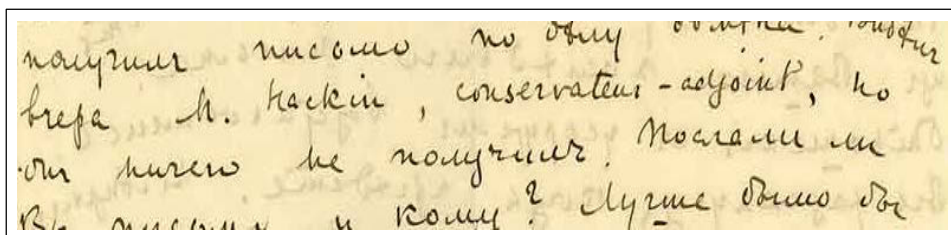 получилъ письмо по дѣлу обмѣна. Видѣлъ
вчера М. Hackin, conservateur-adjoint, но
онъ ничего не получилъ. Послали ли
Вы письмо и кому? Лучше было бы